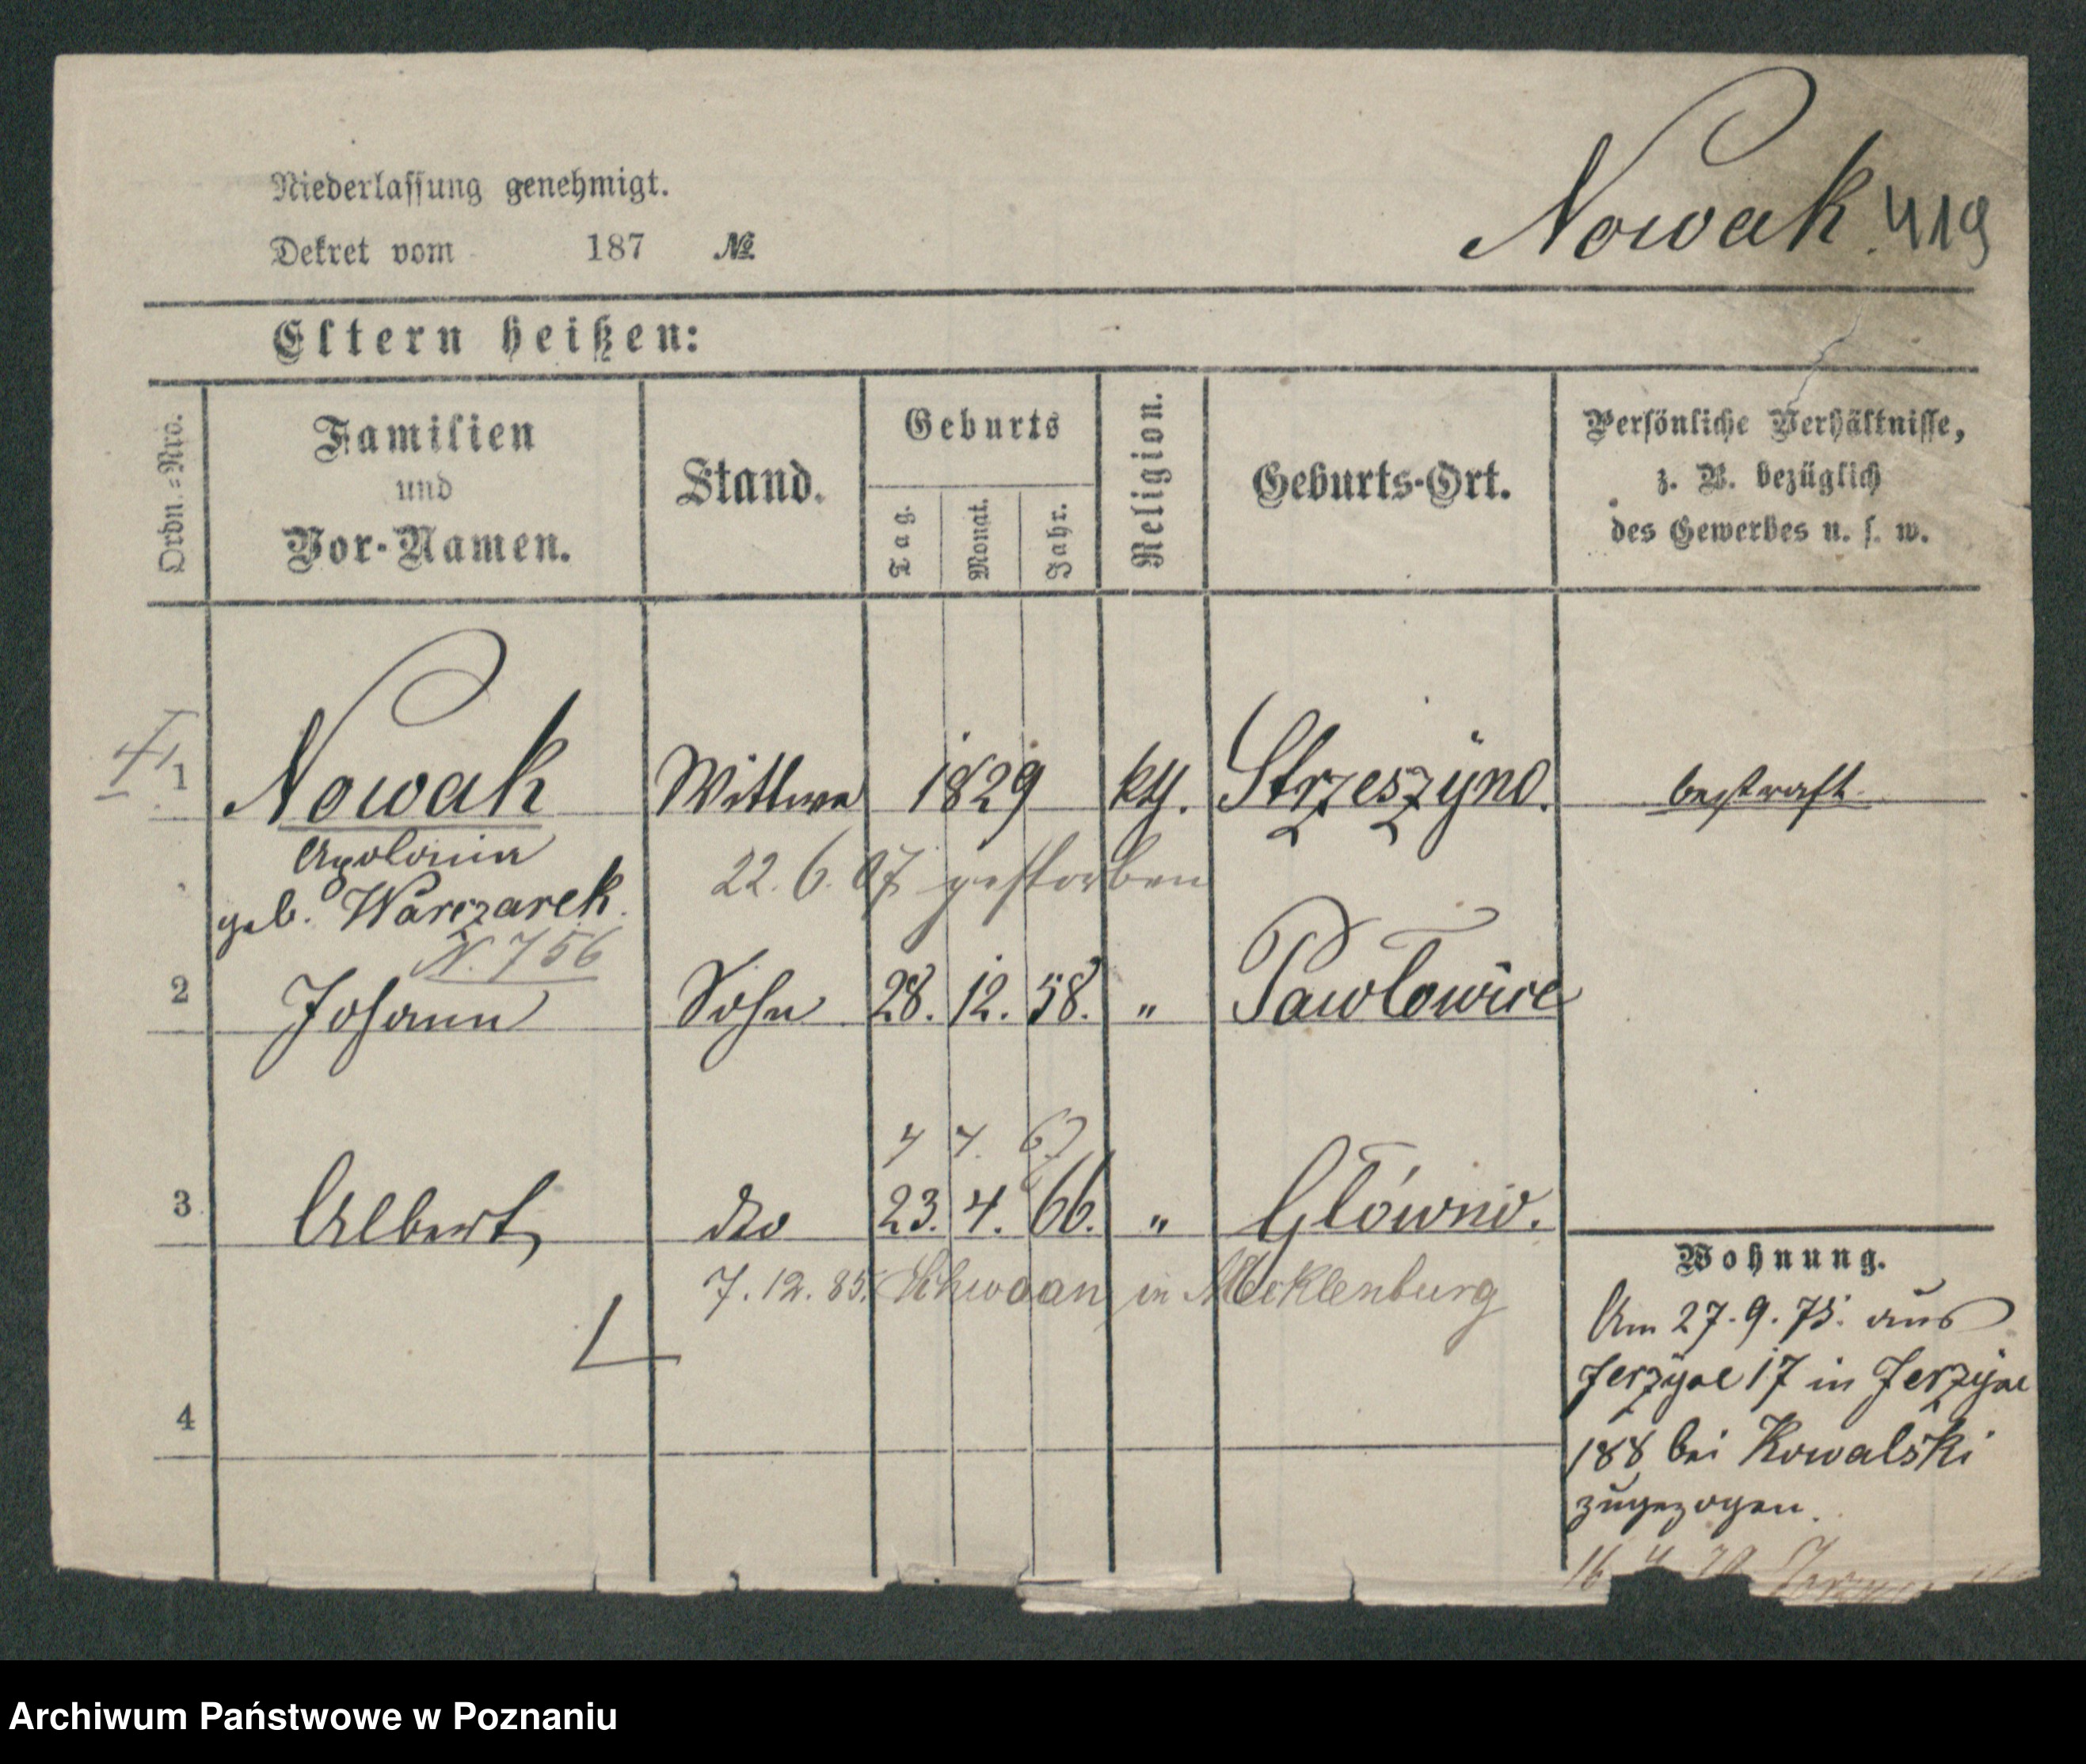 Niederlassung genehmigt.
Dekret vom 187 №
Nowak. 419
Eltern heißen:
Ordn.=Nro.
Familien
und
Vor-Namen.
Stand.
Geburts
Tag.
Monat.
Jahr.
Religion.
Geburts-Ort.
Persönliche Verhältnisse,
z. B. bezüglich
des Gewerbes u. s. w.
1 Nowak Wittwe 1829 kth. Strzeszyno. bestraft
Apolonia
22. 6. 07 gestorben
geb. Warczarek.
N. 756
2 Johann Sohn 28. 12. 58. " Pawłowice
4 7. 67
3 Albert, dto 23. 4. 66. " Główno.
7. 12. 85. Schwaan in Mecklenburg
4
Wohnung.
Am 27. 9. 75. aus
Jerzyce 17 in Jerzyce
188 bei Kowalski
zugezogen.
16 4 79
Archiwum Państwowe w Poznaniu